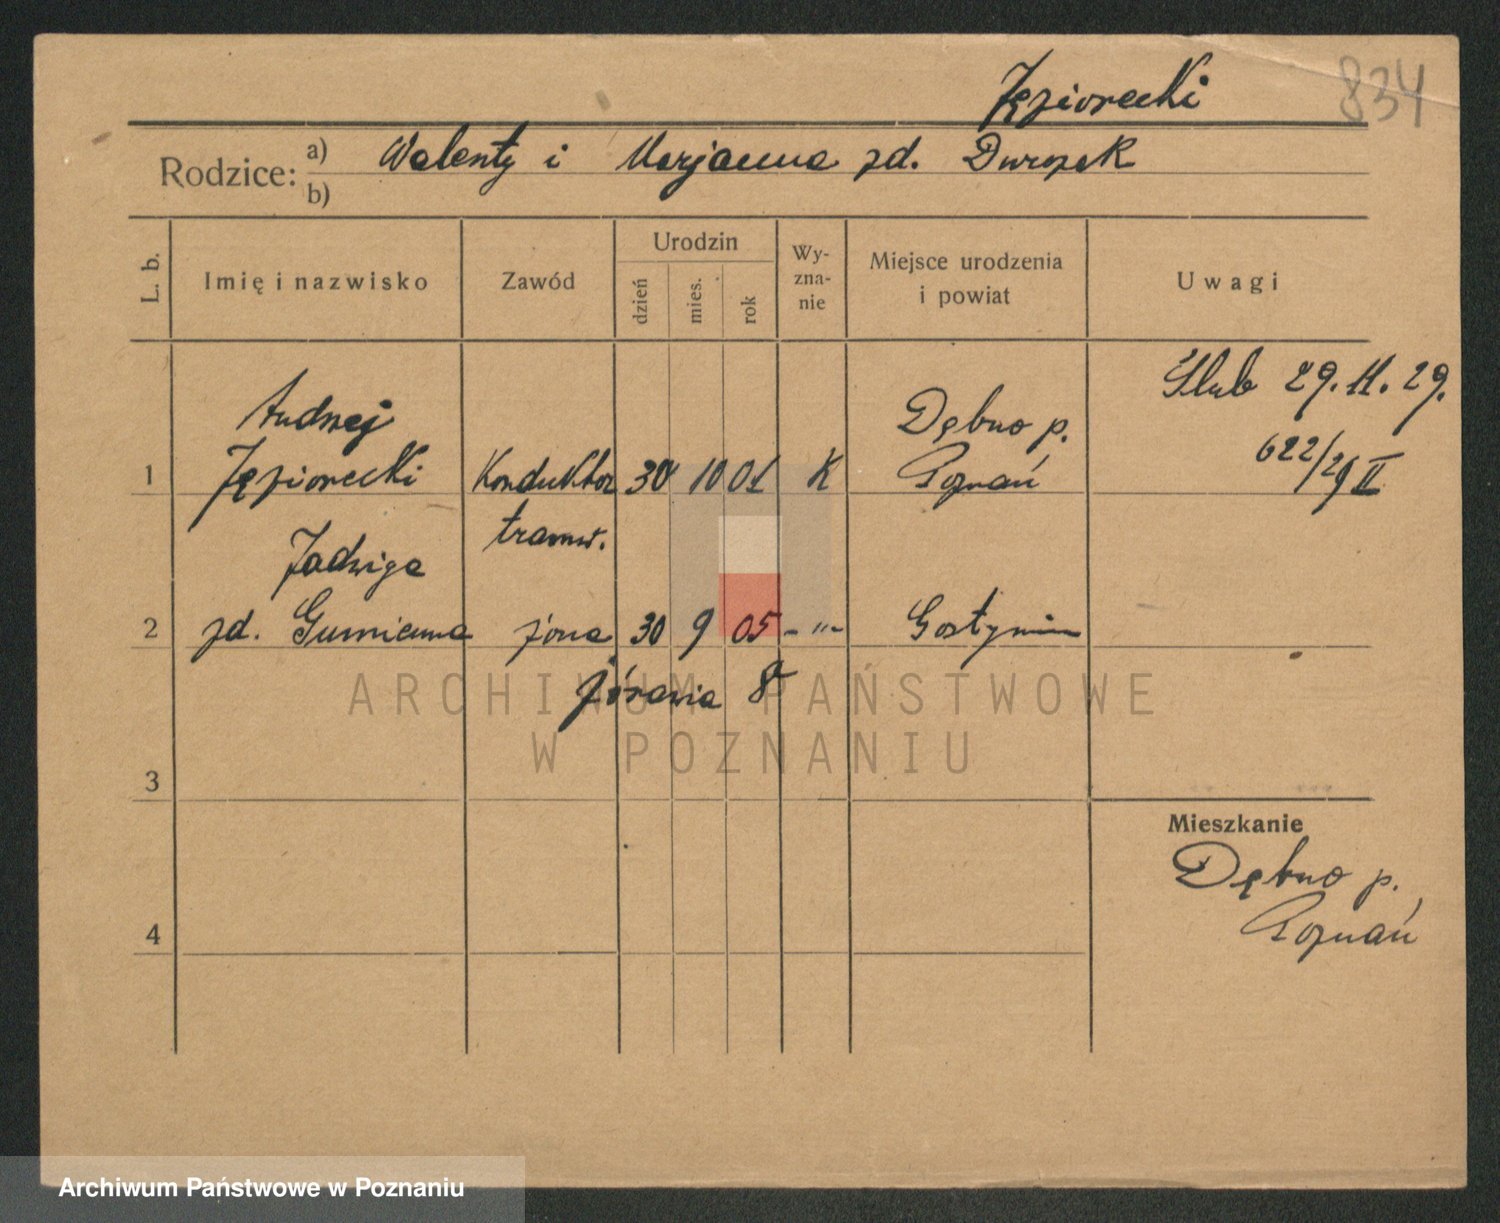 Jęziorecki
834
Rodzice: a) Walenty i Marjanna zd. Durczak
b)
L. b.
Imię i nazwisko
Zawód
Urodzin
dzień
mies.
rok
Wy-
zna-
nie
Miejsce urodzenia
i powiat
Uwagi
Ślub 29. 11. 29.
622/29 II
Andrzej
Dębno p.
1 Jęziorecki Konduktor 30 10 01 K Poznań
tramw.
Jadwiga
2 zd. żona 30 9 05 - " - Gostynin
Żórawia 8
ARCHIWUM PAŃSTWOWE
W POZNANIU
3
Mieszkanie
Dębno p.
Poznań
4
Archiwum Państwowe w Poznaniu